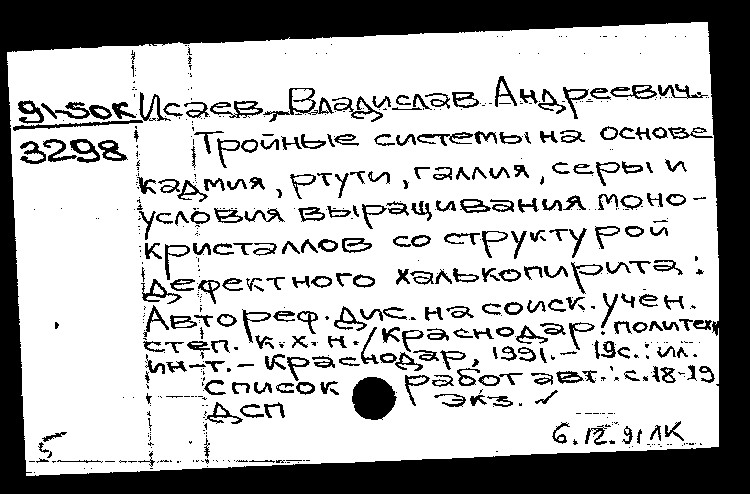 91-50К Исаев, Владислав Андреевич.
3298 Тройные системы на основе
кадмия, ртути, галлия, серы и
условия выращивания моно-
кристаллов со структурой
дефектного халькопирита:
Автореф. дис. на соиск. учен.
степ. к.х.н./Краснодар. политехн
ин-т. - Краснодар, 1991. - 19с.: ил.
Список работ авт.: с.18-19
ДСП экз. ✓
5 6.12.91 ЛК